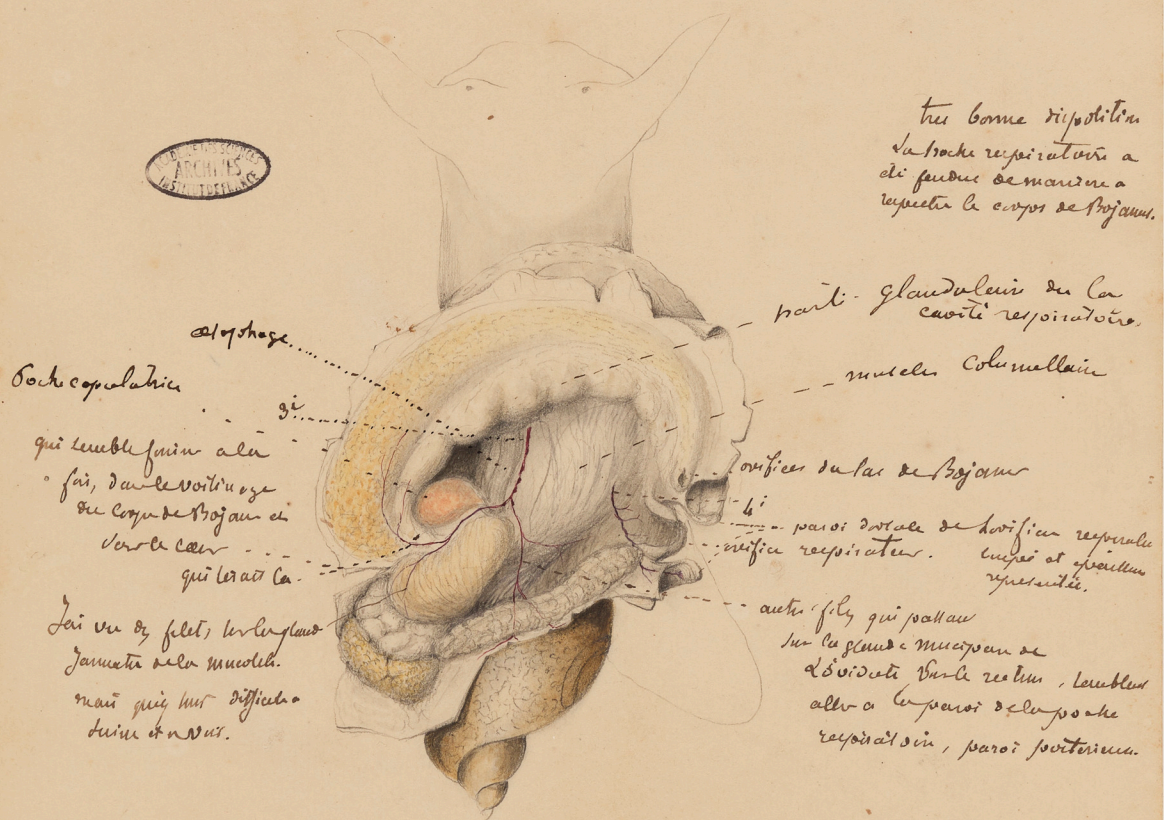 ACADÉMIE DES SCIENCES
ARCHIVES
INSTITUT DE FRANCE
très bonne disposition
La poche respiratoire a
été fendue de manière a
respecter le corps de Bojanus.
parti glandulaire de la
cavité respiratoire.
muscles columellaire
œsophage
Poche copulatrice
3e
qui semble fournir a la
fois, dans le voisinage
du corps de Bojanus et
vers le cœur
qui serait la
orifices du sac de Bojanus
4e
paroi dorsale de l'orifice
orifice respirateur.
coupée et
representée.
J'ai vu des filets sur la gland
de la
mais qui sont difficile a
suivre et a voir.
autres filets qui passan
sur la glande mucipare de
vers le rectum, semblent
aller a la paroi de la poche
respiratoire, paroi posterieure.